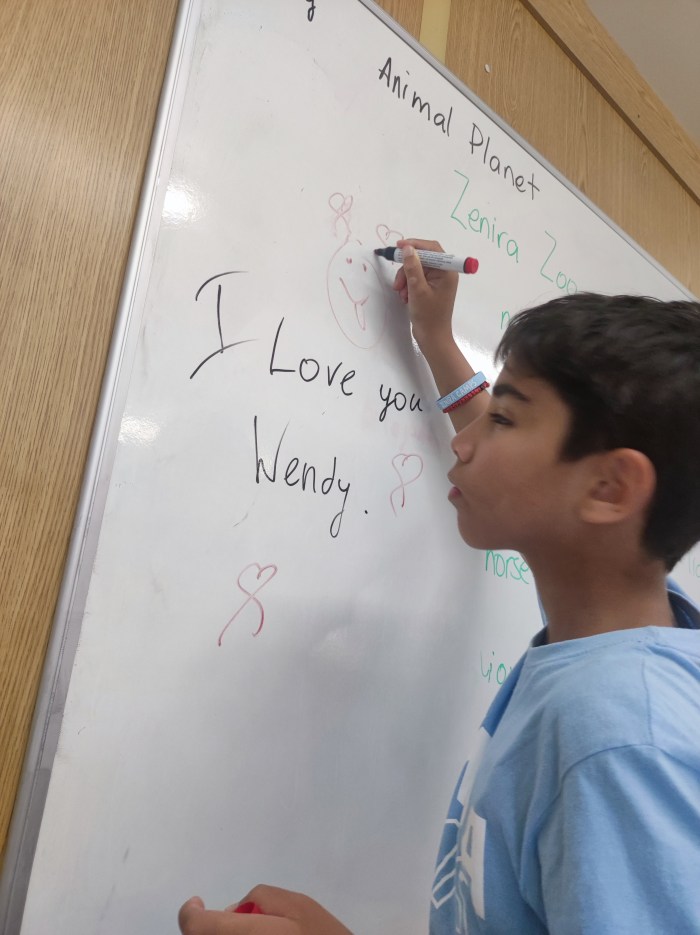 Animal Planet
Zenira Zoo
I Love you
Wendy.
horse